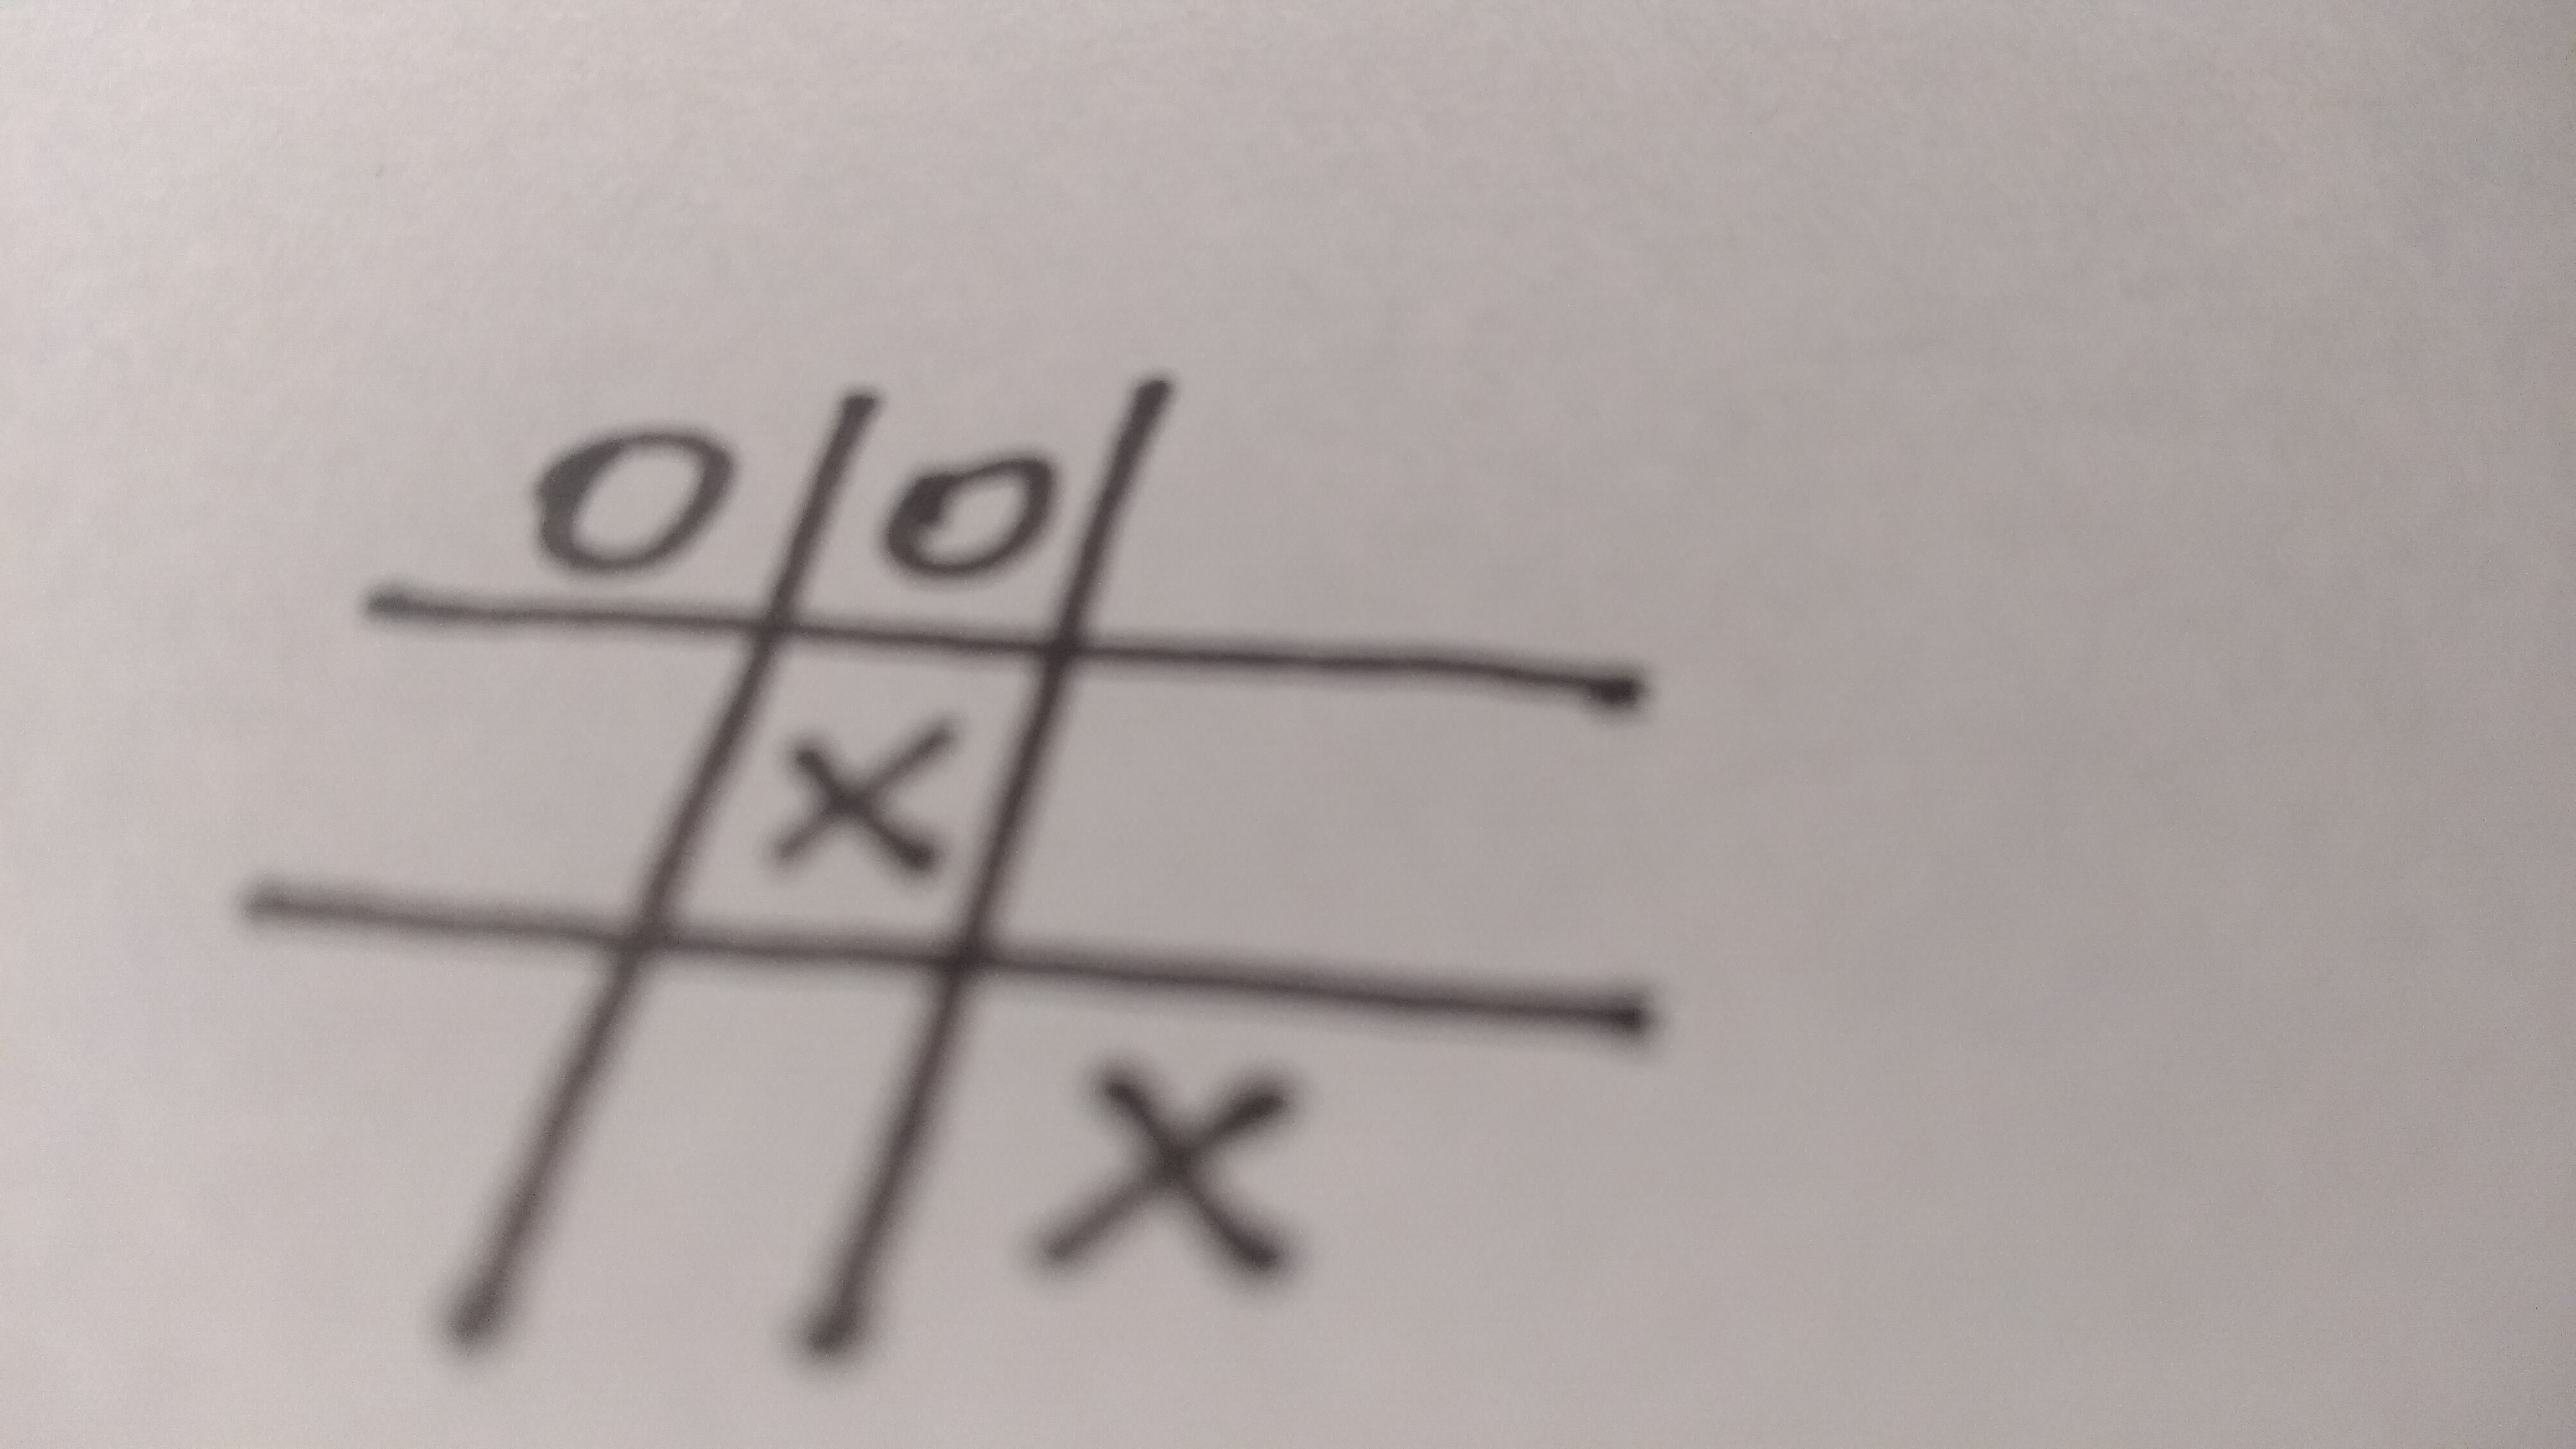 O O
X
X